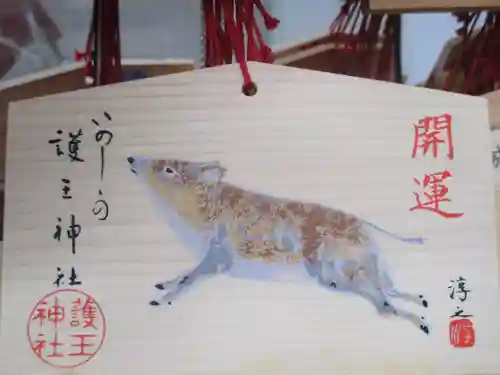 開運
いのしゝの
護王神社
護王
神社
淳之